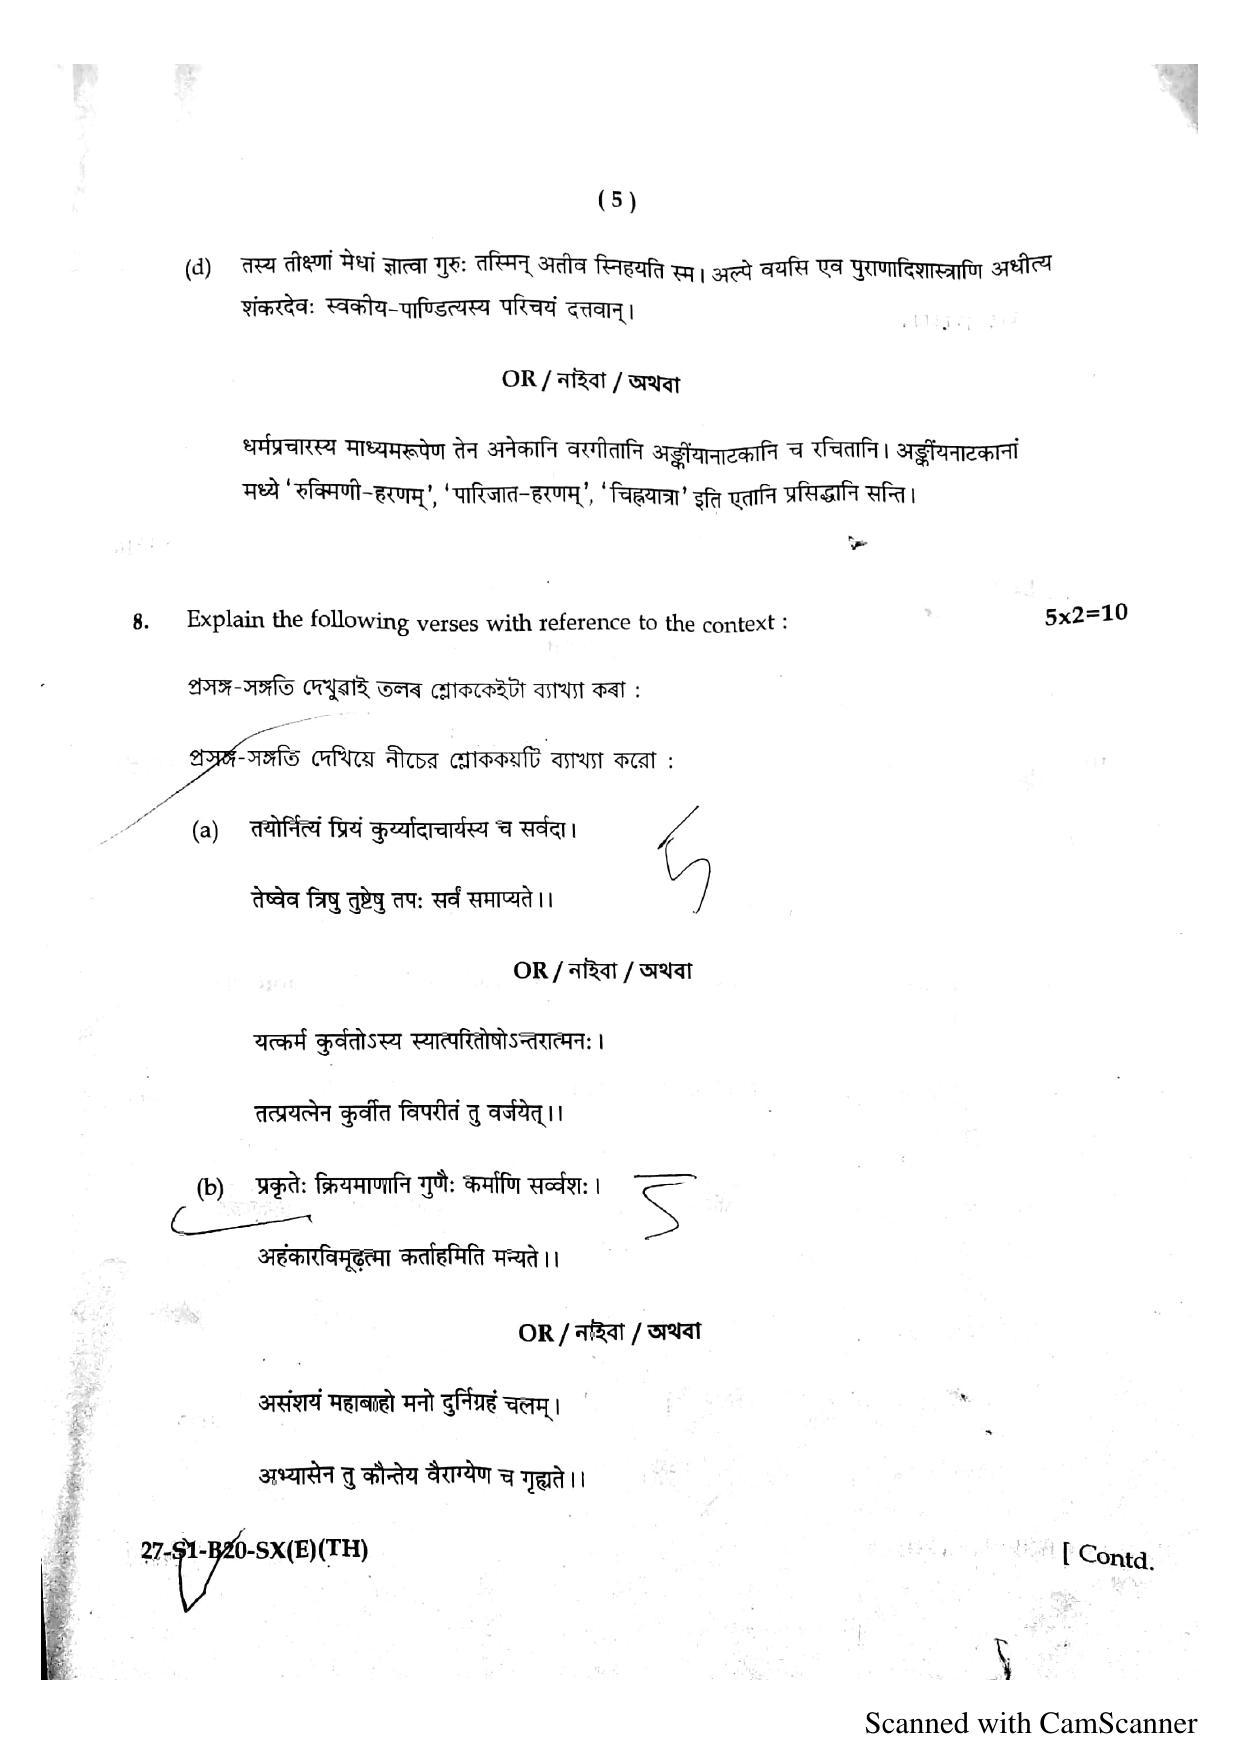 ( 5 )
(d) तस्य तीक्ष्णां मेधां ज्ञात्वा गुरुः तस्मिन् अतीव स्निहयति स्म। अल्पे वयसि एव पुराणादिशास्त्राणि अधीत्य
शंकरदेवः स्वकीय-पाण्डित्यस्य परिचयं दत्तवान्।
OR / নাইবা / অথবা
धर्मप्रचारस्य माध्यमरूपेण तेन अनेकानि वरगीतानि अङ्कीयानाटकानि च रचितानि। अङ्कीयनाटकानां
मध्ये 'रुक्मिणी-हरणम्', 'पारिजात-हरणम्', 'चिह्नयात्रा' इति एतानि प्रसिद्धानि सन्ति।
8. Explain the following verses with reference to the context : 5x2=10
প্ৰসঙ্গ-সঙ্গতি দেখুৱাই তলৰ শ্লোককেইটা ব্যাখ্যা কৰা :
প্রসঙ্গ-সঙ্গতি দেখিয়ে নীচের শ্লোককয়টি ব্যাখ্যা করো :
(a) तयोर्नित्यं प्रियं कुर्य्यादाचार्यस्य च सर्वदा।
तेष्वेव त्रिषु तुष्टेषु तपः सर्वं समाप्यते।।
OR / নাইবা / অথবা
यत्कर्म कुर्वतोऽस्य स्यात्परितोषोऽन्तरात्मनः।
तत्प्रयत्नेन कुर्वीत विपरीतं तु वर्जयेत्।।
(b) प्रकृतेः क्रियमाणानि गुणैः कर्माणि सर्व्वशः।
अहंकारविमूढ़त्मा कर्ताहमिति मन्यते।।
OR / নাইবা / অথবা
असंशयं महाबाहो मनो दुर्निग्रहं चलम्।
अभ्यासेन तु कौन्तेय वैराग्येण च गृह्यते।।
27-S1-B20-SX(E)(TH) [ Contd.
Scanned with CamScanner